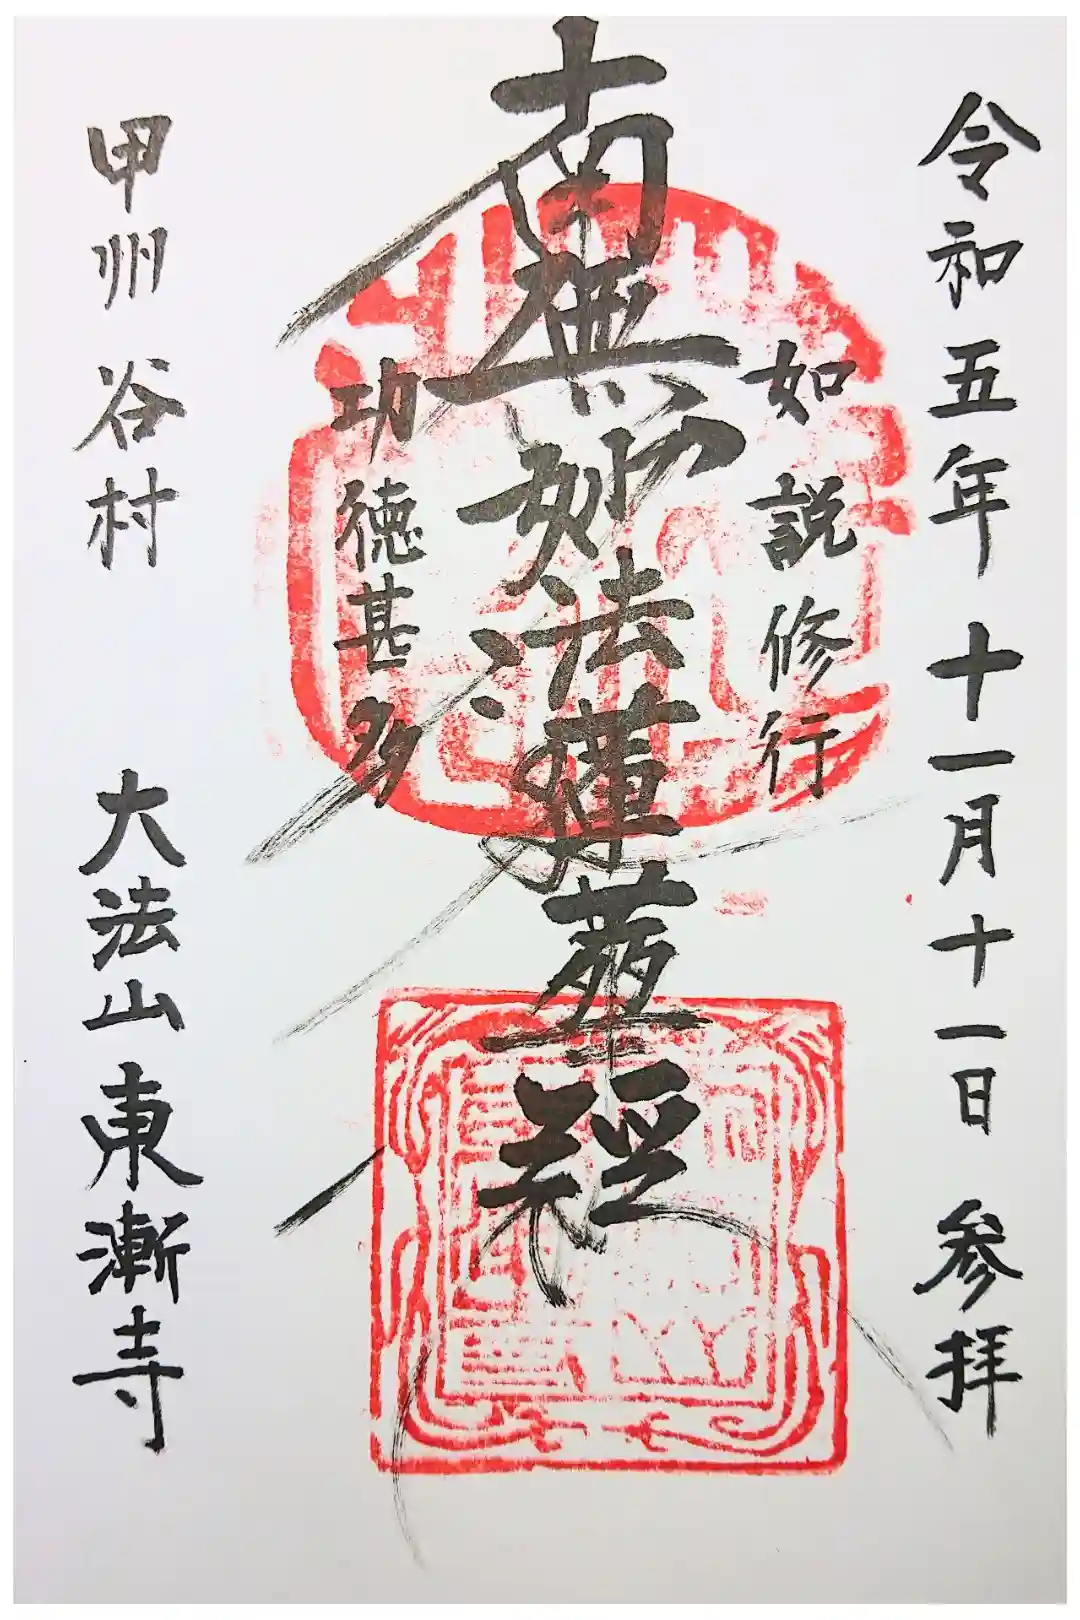 令和五年十一月十一日 参拝
如説修行
南無妙法蓮華経
功徳甚多
甲州 谷村 大法山東漸寺